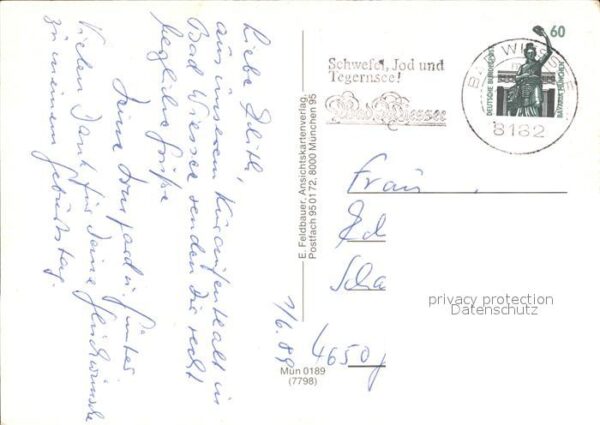 Liebe Edith,
aus unserem Kuraufenthalt in
Bad Wiessee senden Dir recht
herzliche Grüße
Deine Irmgard u. Günter
Vielen Dank für Deine Glückwünsche
zu meinem Geburtstag.
1/6.89
E. Feldbauer, Ansichtskartenverlag,
Postfach 950172, 8000 München 95
Mün 0189
(7798)
Schwefel, Jod und
Tegernsee!
Bad Wiessee
BAD WIESSEE
8182
60
DEUTSCHE BUNDESPOST
BAVARIA MÜNCHEN
Frau
Ed
Scha
4650
privacy protection
Datenschutz